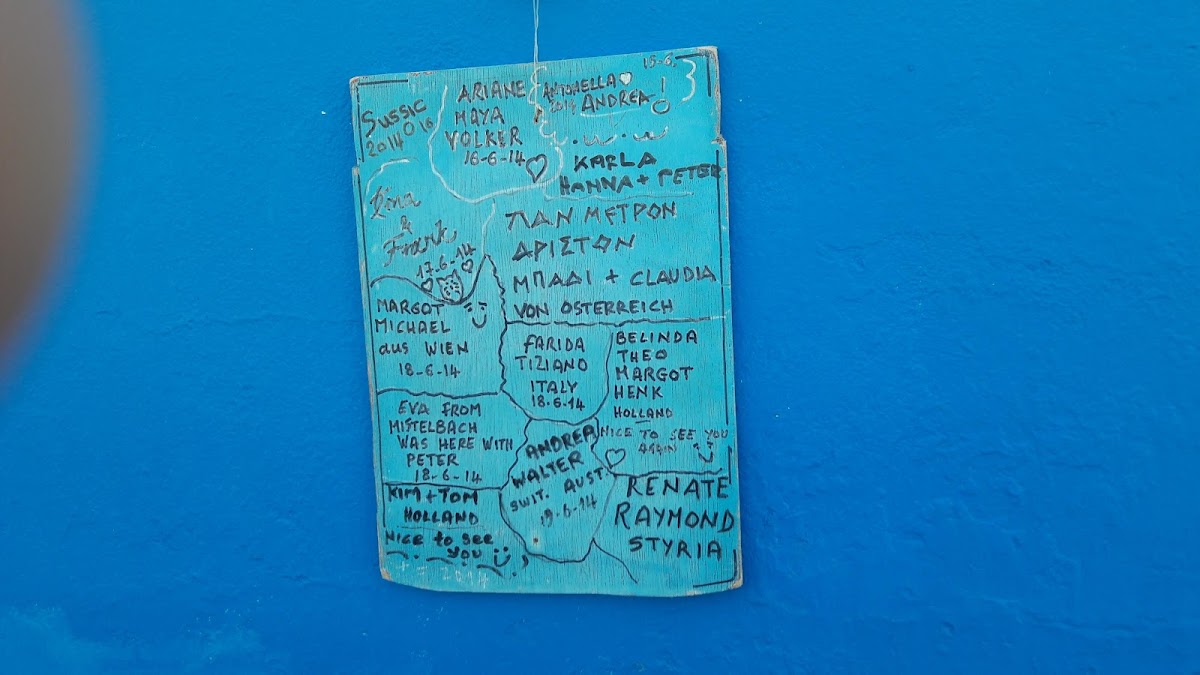 SUSSIC
2014
ARIANE
MAYA
VOLKER
16-6-14
15-6.
ANTONELLA
2014 ANDREA!
KARLA
HANNA + PETER
&
Frank
17-6-14
ΠΑΝ ΜΕΤΡΟΝ
ΑΡΙΣΤΟΝ
ΜΠΑΔΙ + CLAUDIA
VON OSTERREICH
MARGOT
MICHAEL
aus WIEN
18-6-14
FARIDA
TIZIANO
ITALY
18-6-14
BELINDA
THEO
MARGOT
HENK
HOLLAND
NICE TO SEE YOU
AGAIN
EVA FROM
MISTELBACH
WAS HERE WITH
PETER
18-6-14
ANDREA
WALTER
SWIT. AUST.
19-6-14
KIM + TOM
HOLLAND
NICE to see
you
RENATE
RAYMOND
STYRIA
2014